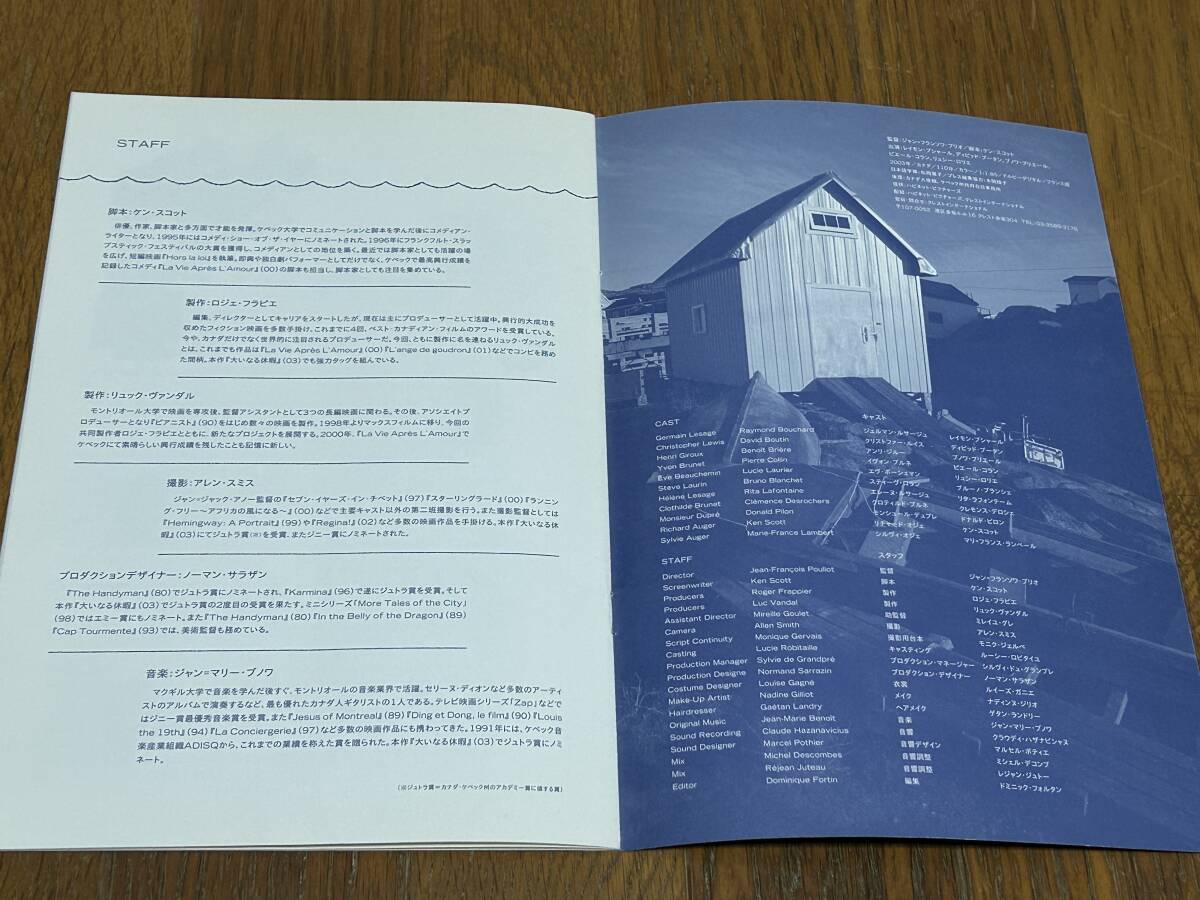 STAFF
脚本：ケン・スコット
俳優、作家、脚本家と多方面で才能を発揮。ケベック大学でコミュニケーションと脚本を学んだ後にコメディアン・
ライターとなり、1995年にはコメディ・ショー・オブ・ザ・イヤーにノミネートされた。1996年にフランクフルト・スラッ
プスティック・フェスティバルの大賞を獲得し、コメディアンとしての地位を築く。最近では脚本家としても活躍の場
を広げ、短編映画『Hors la loi』を執筆。即興や独白劇パフォーマーとしてだけでなく、ケベックで最高興行成績を
記録したコメディ『La Vie Après L'Amour』(00)の脚本も担当し、脚本家としても注目を集めている。
製作：ロジェ・フラピエ
編集、ディレクターとしてキャリアをスタートしたが、現在は主にプロデューサーとして活躍中。興行的大成功を
収めたフィクション映画を多数手掛け、これまでに4回、ベスト・カナディアン・フィルムのアワードを受賞している。
今や、カナダだけでなく世界的に注目されるプロデューサーだ。今回、ともに製作に名を連ねるリュック・ヴァンダル
とは、これまでも作品は『La Vie Après L'Amour』(00)『L'ange de goudron』(01)などでコンビを務め
た間柄。本作『大いなる休暇』(03)でも強力タッグを組んでいる。
製作：リュック・ヴァンダル
モントリオール大学で映画を専攻後、監督アシスタントとして3つの長編映画に関わる。その後、アソシエイトプ
ロデューサーとなり『ピアニスト』(90)をはじめ数々の映画を製作。1998年よりマックスフィルムに移り、今回の
共同製作者ロジェ・フラピエとともに、新たなプロジェクトを展開する。2000年、『La Vie Après L'Amour』で
ケベックにて素晴らしい興行成績を残したことも記憶に新しい。
撮影：アレン・スミス
ジャン=ジャック・アノー監督の『セブン・イヤーズ・イン・チベット』(97)『スターリングラード』(00)『ランニン
グ・フリー〜アフリカの風になる〜』(00)などで主要キャスト以外の第二班撮影を行う。また撮影監督としては
『Hemingway: A Portrait』(99)や『Regina!』(02)など多数の映画作品を手掛ける。本作『大いなる休
暇』(03)にてジュトラ賞(※)を受賞、またジニー賞にノミネートされた。
プロダクションデザイナー：ノーマン・サラザン
『The Handyman』(80)でジュトラ賞にノミネートされ、『Karmina』(96)で遂にジュトラ賞を受賞。そして
本作『大いなる休暇』(03)でジュトラ賞の2度目の受賞を果たす。ミニシリーズ「More Tales of the City」
(98)ではエミー賞にもノミネート。また『The Handyman』(80)『In the Belly of the Dragon』(89)
『Cap Tourmente』(93)では、美術監督も務めている。
音楽：ジャン=マリー・ブノワ
マクギル大学で音楽を学んだ後すぐ、モントリオールの音楽業界で活躍。セリーヌ・ディオンなど多数のアーティ
ストのアルバムで演奏するなど、最も優れたカナダ人ギタリストの1人である。テレビ映画シリーズ「Zap」などで
はジニー賞最優秀音楽賞を受賞。また『Jesus of Montreal』(89)『Ding et Dong, le film』(90)『Louis
the 19th』(94)『La Conciergerie』(97)など多数の映画作品にも携わってきた。1991年には、ケベック音
楽産業組織ADISQから、これまでの業績を称えた賞を贈られた。本作『大いなる休暇』(03)でジュトラ賞にノミ
ネート。
(※ジュトラ賞＝カナダ・ケベック州のアカデミー賞に値する賞)
監督：ジャン・フランソワ・プリオ／脚本：ケン・スコット
出演：レイモン・ブシャール、ディビッド・ブータン、ブノワ・ブリエール、
ピエール・コラン、リュシー・ロリエ
2003年／カナダ／110分／カラー／1:1.85／ドルビーデジタル／フランス語
〒107-0052 港区赤坂 TEL:03-3589-3176
CAST キャスト
Germain Lesage Raymond Bouchard ジェルマン・ルサージュ レイモン・ブシャール
Christopher Lewis David Boutin クリストファー・ルイス ディビッド・ブータン
Henri Giroux Benoit Brière アンリ・ジルー ブノワ・ブリエール
Yvon Brunet Pierre Colin イヴォン・ブルネ ピエール・コラン
Ève Beauchemin Lucie Laurier エヴ・ボーシェマン リュシー・ロリエ
Steve Laurin Bruno Blanchet スティーヴ・ロラン ブルーノ・ブランシェ
Hélène Lesage Rita Lafontaine エレーヌ・ルサージュ リタ・ラフォンテーム
Clothilde Brunet Clémence Desrochers クロティルド・ブルネ クレモンス・デロシェ
Monsieur Dupré Donald Pilon モンシュール・デュプレ ドナルド・ピロン
Richard Auger Ken Scott リチャード・オジェ ケン・スコット
Sylvie Auger Marie-France Lambert シルヴィ・オジェ マリ・フランス・ランベール
STAFF スタッフ
Director Jean-François Pouliot 監督 ジャン・フランソワ・プリオ
Screenwriter Ken Scott 脚本 ケン・スコット
Producers Roger Frappier 製作 ロジェ・フラピエ
Producers Luc Vandal 製作 リュック・ヴァンダル
Assistant Director Mireille Goulet 助監督 ミレイユ・グレ
Camera Allen Smith 撮影 アレン・スミス
Script Continuity Monique Gervais 撮影用台本 モニク・ジェルベ
Casting Lucie Robitaille キャスティング ルーシー・ロビタイユ
Production Manager Sylvie de Grandpré プロダクション・マネージャー シルヴィ・ドゥ・グランプレ
Production Designe Normand Sarrazin プロダクション・デザイナー ノーマン・サラザン
Costume Designer Louise Gagné 衣裳 ルイーズ・ガニエ
Make-Up Artist Nadine Gilliot メイク ナディンヌ・ジリオ
Hairdresser Gaétan Landry ヘアメイク ゲタン・ランドリー
Original Music Jean-Marie Benoit 音楽 ジャン・マリー・ブノワ
Sound Recording Claude Hazanavicius 音響 クラウディ・ハザナビシャス
Sound Designer Marcel Pothier 音響デザイン マルセル・ポティエ
Mix Michel Descombes 音響調整 ミシェル・デコンブ
Mix Réjean Juteau 音響調整 レジャン・ジュトー
Editor Dominique Fortin 編集 ドミニック・フォルタン